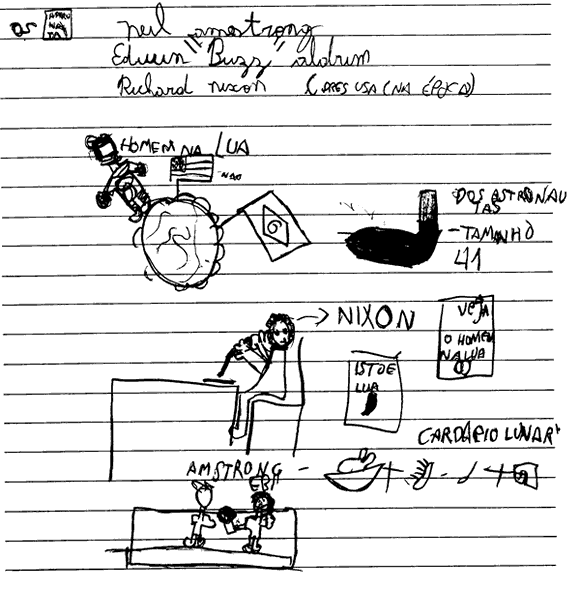 OS
neil amostrong
Eduwin "Buzz" aldrim
Richard nixon (PRES USA (NA ÉPOCA)
HOMEM NA LUA
DOS ASTRONAU
TAS
- TAMANHO
41
NIXON
VEJA
O HOMEM
NA LUA
ISTOE
LUA
CARDÁPIO LUNAR
AMSTRONG -
EBA